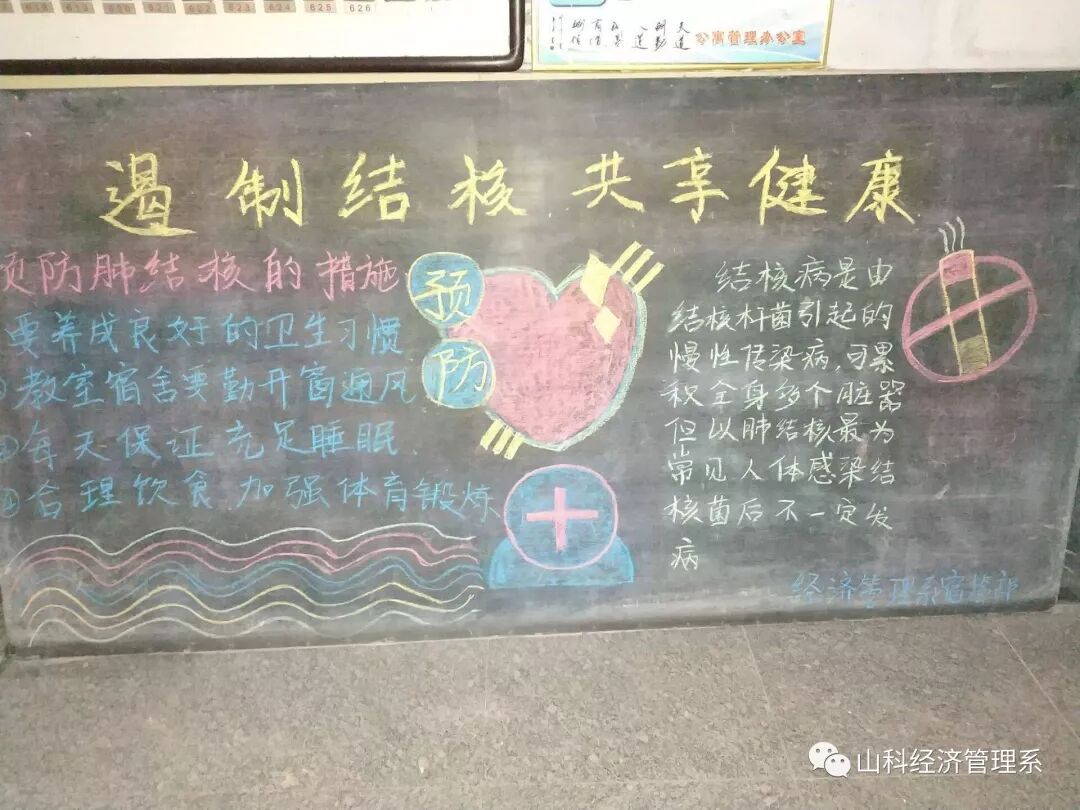 623 624 625 626
公寓管理办公室
遏制结核共享健康
预防肺结核的措施
要养成良好的卫生习惯
教室宿舍要勤开窗通风
每天保证充足睡眠.
合理饮食加强体育锻炼
预
防
结核病是由
结核杆菌引起的
慢性传染病,可累
积全身多个脏器
但以肺结核最为
常见人体感染结
核菌后不一定发
病
经济管理系宿管部
山科经济管理系